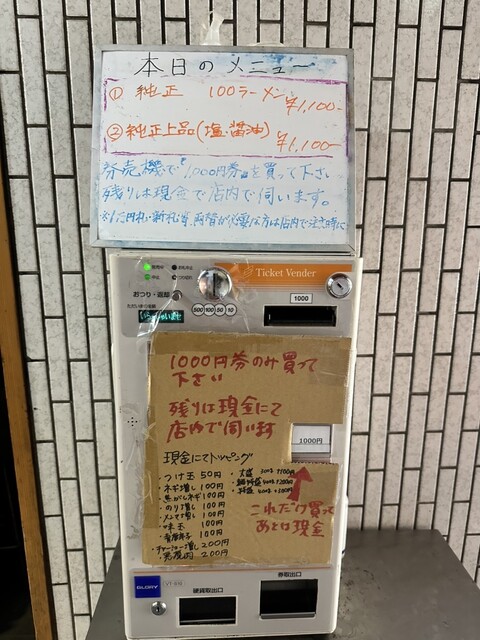 本日のメニュー
① 純正 100ラーメン ¥1,100-
② 純正上品(塩・醤油) ¥1,100-
券売機で「1,000円券」を買って下さい
残りは現金で店内で伺います。
Ticket Vender
1000
おつり・返却
500 100 50 10
いらっしゃいませ
1000円券のみ買って
下さい
残りは現金にて
店内で伺います
1000円
現金にてトッピング
つけ玉 50円
ネギ増し 100円
焦がしネギ 100円
のり増し 100円
メンマ増し 100円
味玉 100円
100円
チャーシュー増し 200円
200円
これだけ買って
あとは現金
GLORY
硬貨取出口
券取出口